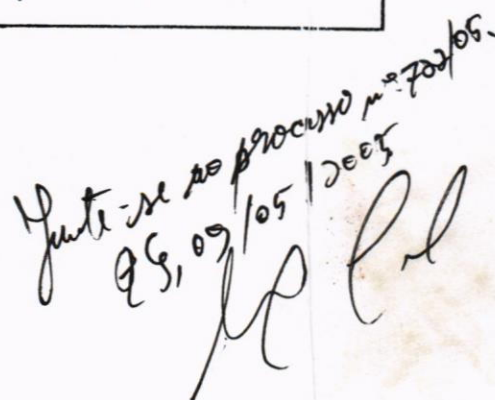 Junte-se ao processo nº 702/05.
QG, 09/05/2005